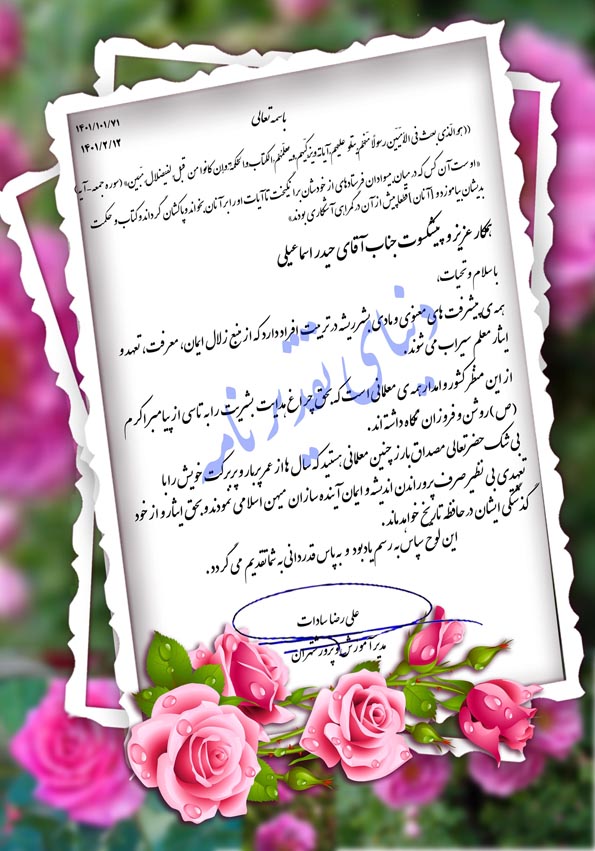 باسمه تعالی
۱۴۰۱/۱۰۱/۷۱
۱۴۰۱/۲/۱۲
((هوالّذی بعث فی الامّیین رسولاً منهم یتلو علیهم آیاته و یزکّیهم و یعلّمهم الکتاب والحکمة وان کانوا من قبل لفی ضلال مبین» (سوره جمعه-آیه
«اوست آن کس که در میان بی سوادان فرستاده‌ای از خودشان برانگیخت تا آیات او را بر آنان بخواند و پاکشان گرداند و کتاب و حکمت
بدیشان بیاموزد و [آنان] قطعا پیش از آن در گمراهی آشکاری بودند»
همکار عزیز و پیشکسوت جناب آقای حیدر اسماعیلی
با سلام و تحیات،
همه ی پیشرفت های معنوی و مادی بشر ریشه در تربیت افراد دارد که از منبع زلال ایمان، معرفت، تعهد و
ایثار معلم سیراب می شوند.
از این منظر کشور وامدار همه ی معلمانی است که بحق چراغ هدایت بشریت را به تاسی از پیامبر اکرم
(ص) روشن و فروزان نگاه داشته اند.
بی شک حضرتعالی مصداق بارز چنین معلمانی هستید که سال ها از عمر پربار و پربرکت خویش را با
تعهدی بی نظیر صرف پروراندن اندیشه و ایمان آینده سازان میهن اسلامی نمودند و بحق ایثار و از خود
گذشتگی ایشان در حافظه تاریخ خواهد ماند.
این لوح سپاس به رسم یادبود و به پاس قدردانی به شما تقدیم می گردد.
علی رضا سادات
مدیر آموزش و پرورش تهران
دنیای تقدیرنامه